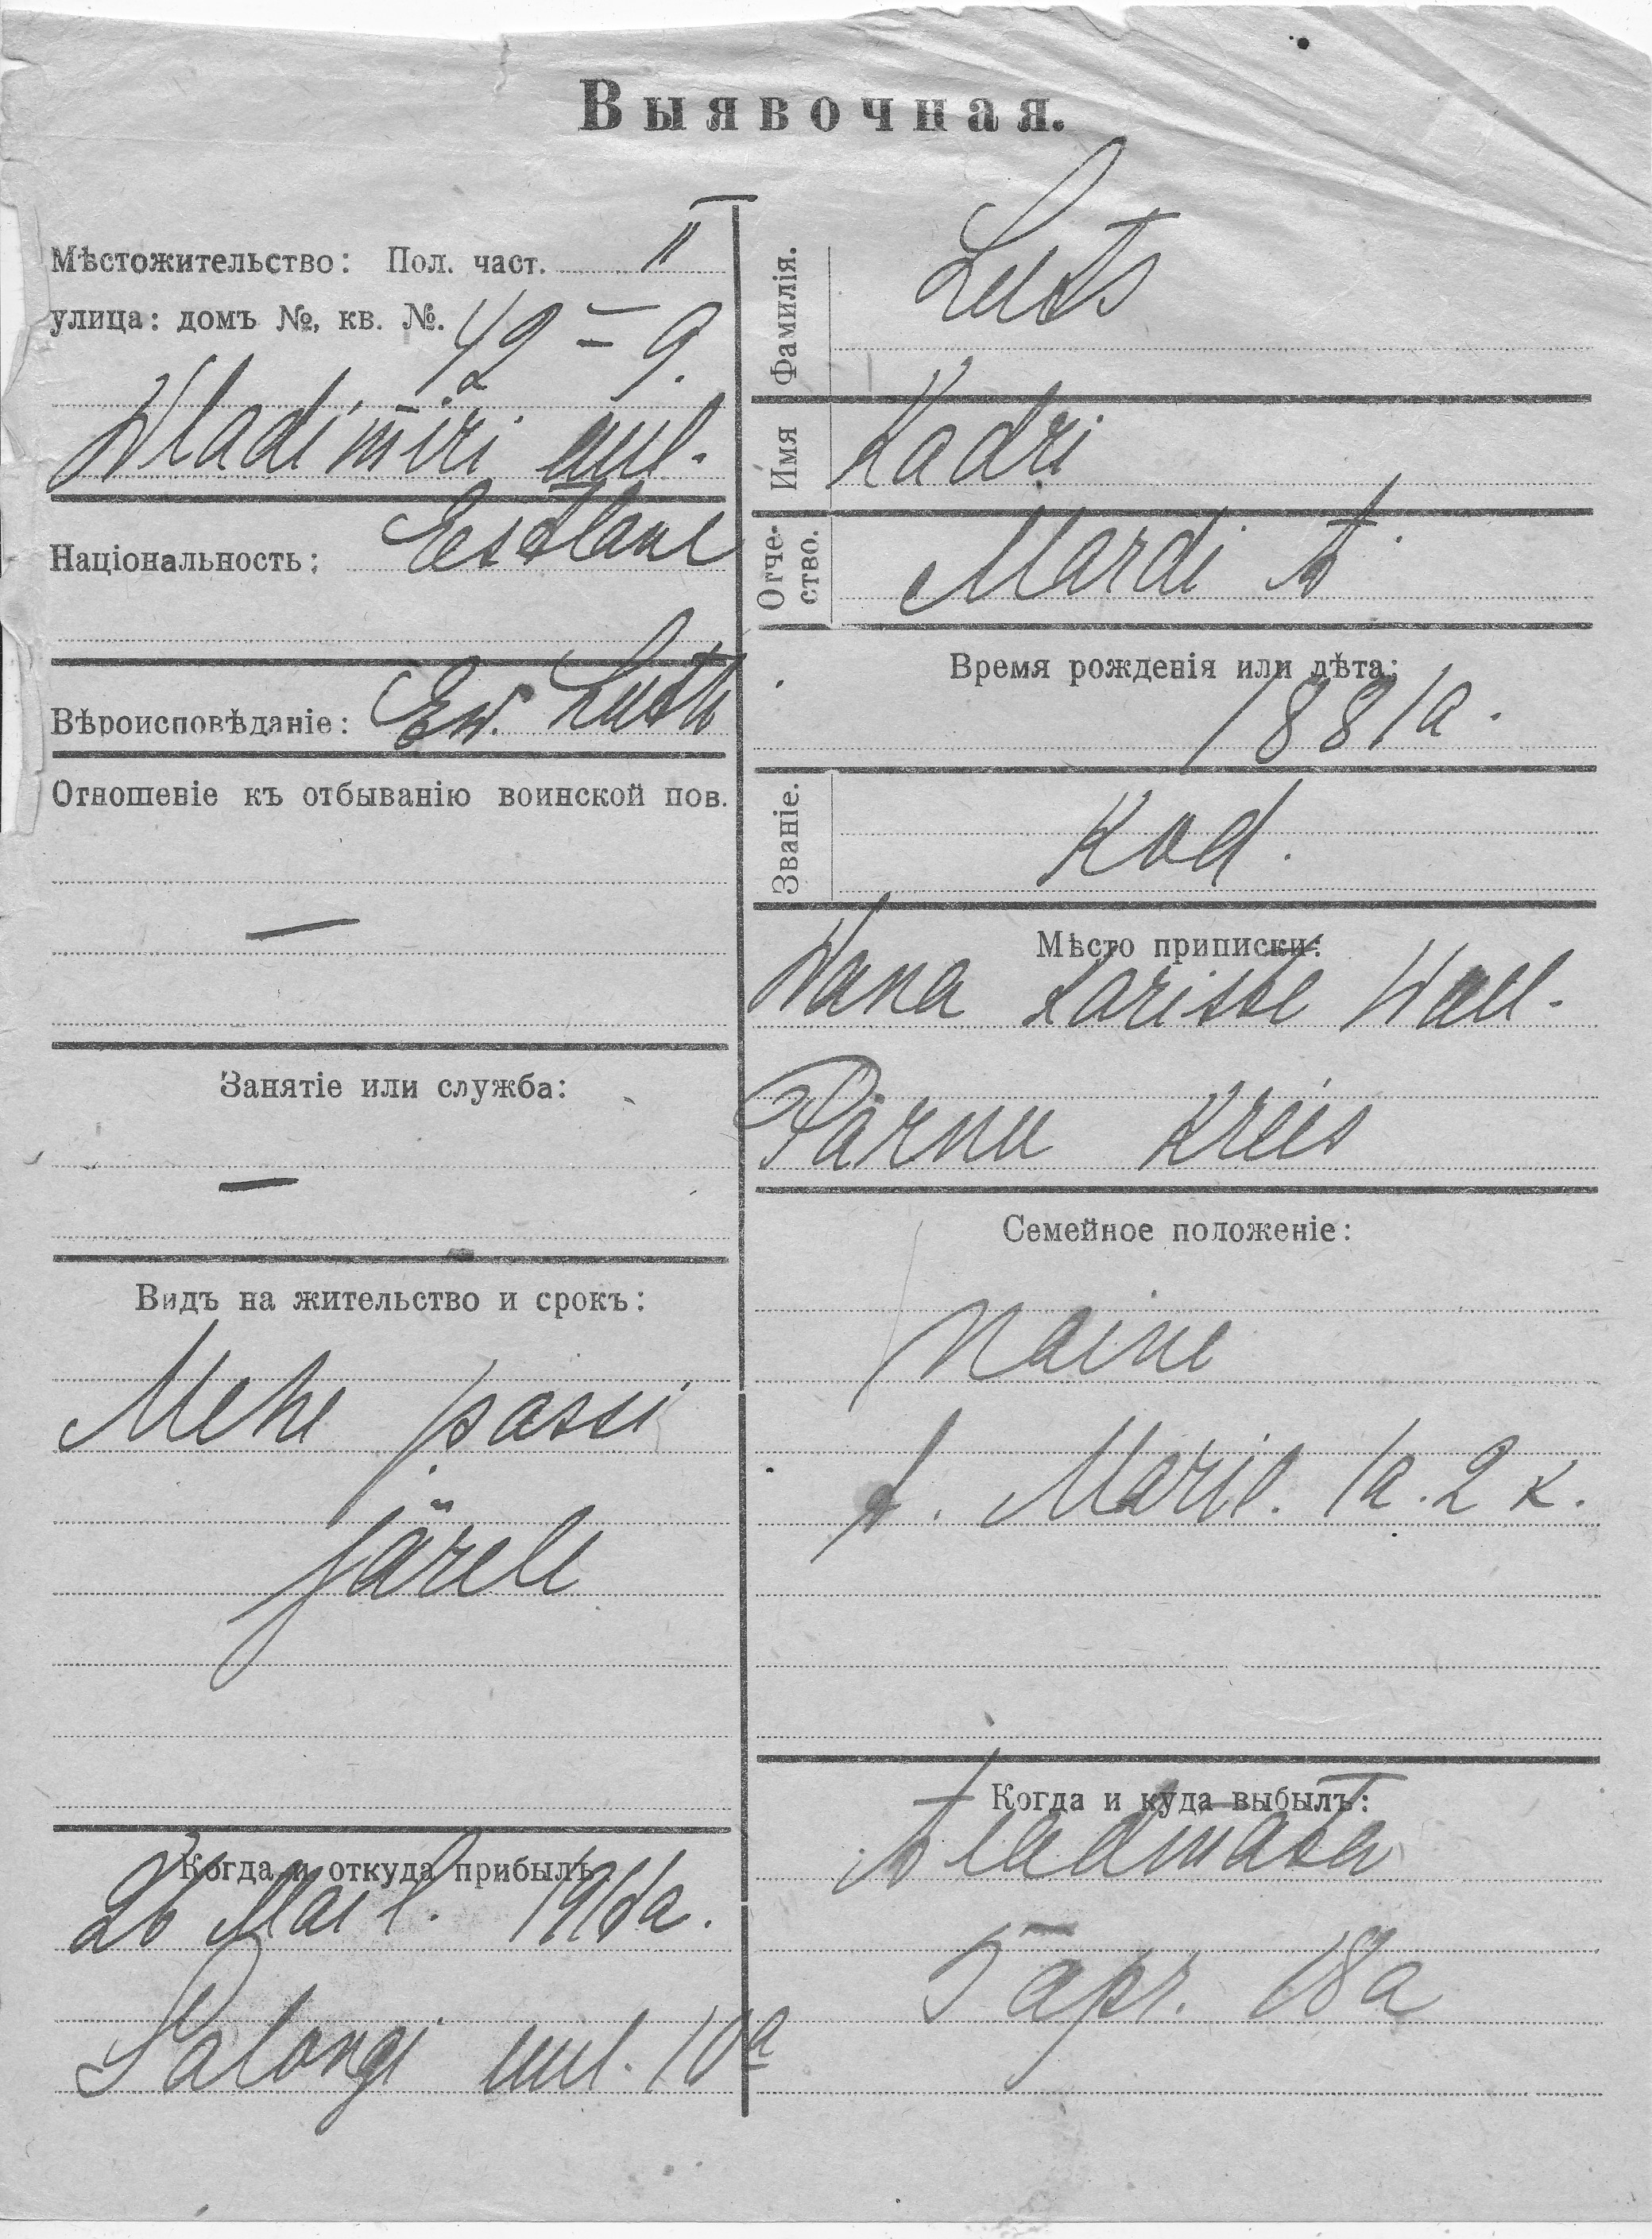 Выявочная.
Мѣстожительство: Пол. част. II
улица: домъ №, кв. №. 42 - 9.
Wladimiri uul.
Національность: Eestlane
Вѣроисповѣданіе: Ew. Luth
Отношеніе къ отбыванію воинской пов.
—
Занятіе или служба:
—
Видъ на жительство и срокъ:
Mehe passi
järele
Когда и откуда прибылъ
26 Mail. 1918a.
Salongi uul. 10a
Фамилія. Luts
Имя Kadri
Отчество. Mardi t.
Время рожденія или лѣта:
1881a.
Званіе. Kod.
Мѣсто приписки:
Wana Kariste Wall.
Pärnu Kreis
Семейное положеніе:
Naine
t. Marie. 1a. 2 k.
Когда и куда выбылъ:
teadmata
5 apr. 18a